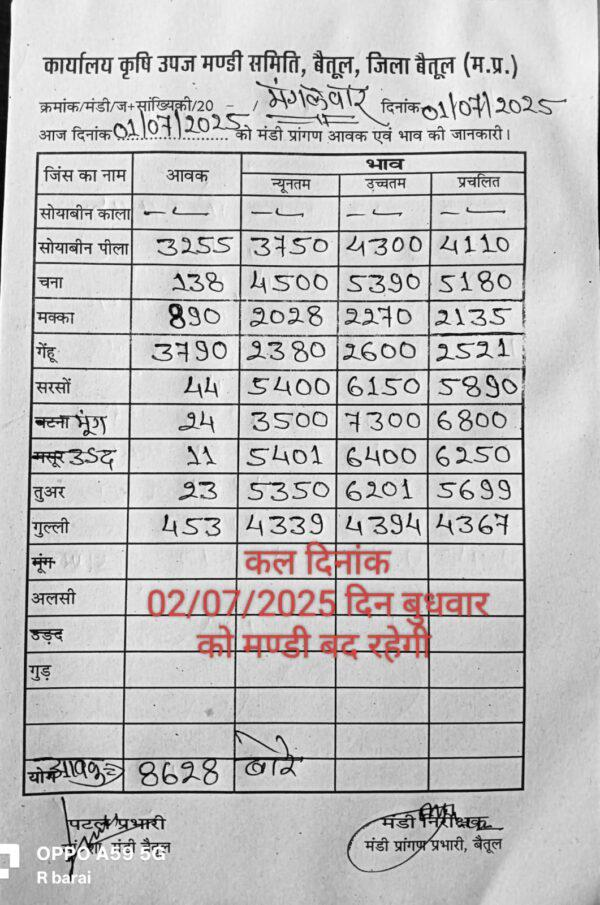 कार्यालय कृषि उपज मण्डी समिति, बैतूल, जिला बैतूल (म.प्र.)
क्रमांक/मंडी/ज+सांख्यिकी/20 - / मंगळवार दिनांक 01/07/2025
आज दिनांक 01/07/2025 को मंडी प्रांगण आवक एवं भाव की जानकारी।
जिंस का नाम आवक भाव
न्यूनतम उच्चतम प्रचलित
सोयाबीन काला -- -- -- --
सोयाबीन पीला 3255 3750 4300 4110
चना 138 4500 5390 5180
मक्का 890 2028 2270 2135
गेंहू 3790 2380 2600 2521
सरसों 44 5400 6150 5890
बटना मूंग 24 3500 7300 6800
मसूर उड़द 11 5401 6400 6250
तुअर 23 5350 6201 5699
गुल्ली 453 4339 4394 4367
मूंग
कल दिनांक
अलसी
02/07/2025 दिन बुधवार
उड़द
को मण्डी बद रहेगी
गुड़
योग आवक 8628 बोरे
पटल प्रभारी मंडी निरीक्षक
मंडी बैतूल मंडी प्रांगण प्रभारी, बैतूल
OPPO A59 5G
R barai